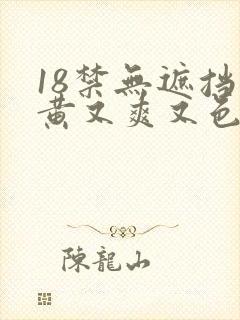 18禁無遮挡
黄又爽又色
陳龍山